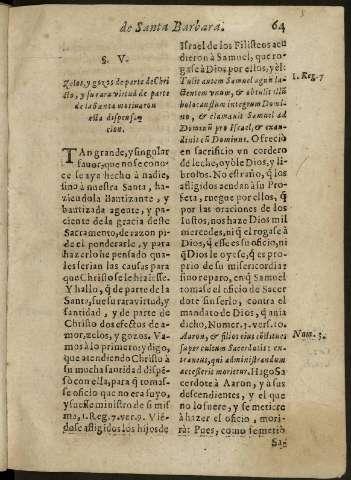 de Santa Barbara. 64
§. V.
Zelos, y gozos de parte de Chri
sto, y su rara virtud de parte
de la Santa motiuaron
esta dispensa-
cion.
TAn grande, y singular
fauor, que no se cono-
ce se aya hecho à nadie,
sino à nuestra Santa, ha-
ziendola Bautizante, y
bautizada agente, y pa-
ciente de la gracia deste
Sacramento, de razon pi-
de el ponderarle, y para
hazerlo he pensado qua-
les serian las causas para
que Christo se le hiziesse.
Y hallo, q̃ de parte de la
Santa, fue su rara virtud, y
santidad, y de parte de
Christo dos efectos de a-
mor, zelos, y gozos. Va-
mos à lo primero; y digo,
que atendiendo Christo à
su mucha santidad dispẽ-
sò con ella, para q̃ tomas-
se oficio que no era suyo,
y fuesse ministro de si mis
ma, 1. Reg. 7. ver. 9. Viẽ-
dose afligidos los hijos de
Israel de los Filisteos acu
dieron à Samuel, que ro-
gase à Dios por ellos, y èl:
Tulit autem Samuel agnũ la-
ctentem vnum, & obtulit illũ
holocaustum integrum Domi-
no, & clamauit Samuel ad
Dominũ pro Israel, & exau-
diuit eũ Dominus. Ofreciò
en sacrificio vn cordero
de leche, oyòle Dios, y li-
brolos. No estraño, q̃ los
afligidos acudan à su Pro-
feta, ruegue por ellos, q̃
por las oraciones de los
Iustos, nos haze Dios mil
mercedes, ni q̃ el rogase à
Dios, q̃ esse es su oficio, ni
q̃ Dios le oyese, q̃ es pro-
prio de su misericordia:
sino reparo, en q̃ Samuel
tomase el oficio de Sacer
dote sin serlo, contra el
mandato de Dios, q̃ auia
dicho, Numer. 3. vers. 10.
Aaron, & filios eius cõstitues
super cultum Sacerdotis: ex-
traneus, qui ad ministrandum
accesserit morietur. Hago Sa
cerdote à Aaron, y à sus
descendientes, y el que
no lo fuere, y se metiere
à hazer el oficio, mori-
rà: Pues, como se metiò
Sa-
1. Reg. 7
Num. 3.